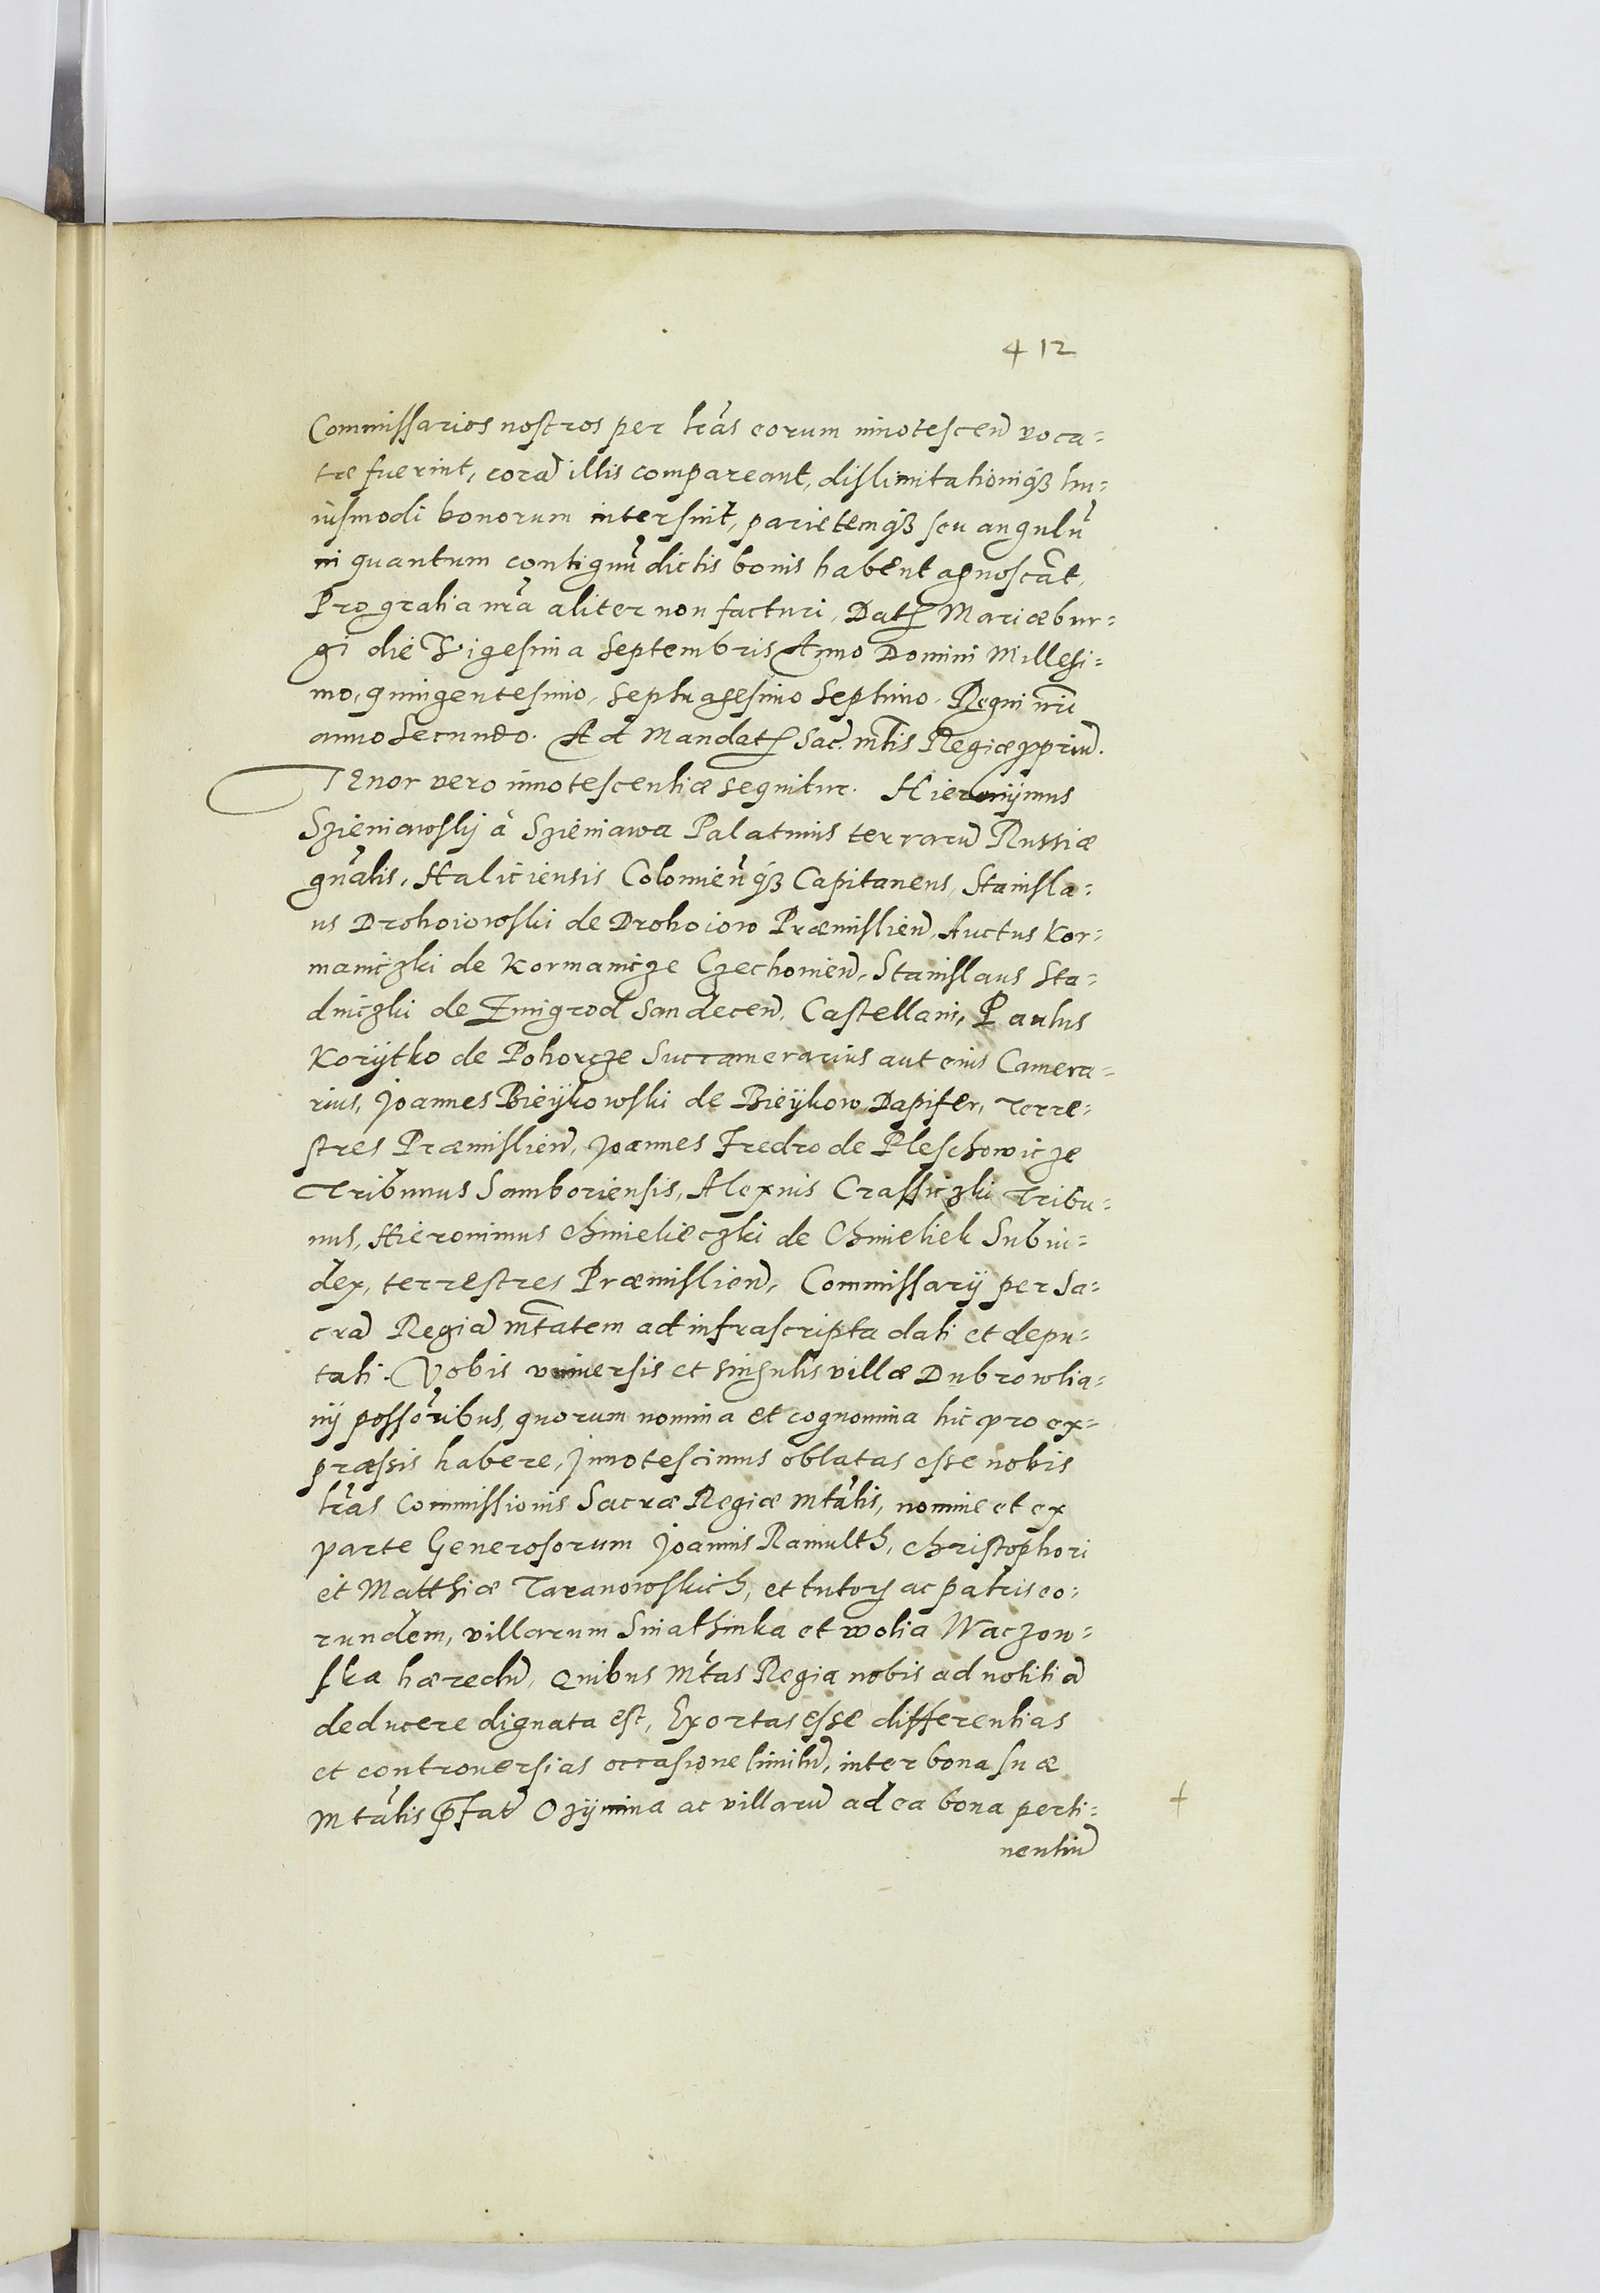 412
Commissarios nostros per lr̃as eorum innotescen̄ voca=
tæ fuerint, corā illis compareant, dislimitationiq́ꝫ hu=
iusmodi bonorum intersint, parietemq́ꝫ seu angulū
in quantum contiguū dictis bonis habent agnoscāt,
Pro gratia nr̃a aliter non facturi, Datꝭ Mariæbur=
gi die Vigesima Septembris Anno Domini Millesi=
mo, quingentesimo, Septuagesimo Septimo. Regni nr̃i
anno Secundo. Ad Mandatꝭ Sac. mt̃is Regiæ ꝓpriū.
Tenor vero innotescentiæ sequitur. Hieronijmus
Szieniawskij à Szieniawa Palatinus terrarū Russiæ
gn̄alis, Haliciensis Colomien̄q́ꝫ Capitaneus, Stanisla=
us Drohoiowski de Drohoiow Præmislien̄, Auctus Kor=
maniczki de Kormanicze Czechonien̄, Stanislaus Sta=
dniczki de Zmigrod Sandecen̄, Castellani, Paulus
Korÿtko de Pohorcze Succamerarius aut eius Camera=
rius, Joannes Bieÿkowski de Bieÿkow Dapifer, Terre=
stres Præmislien̄, Joannes Fredro de Pleschowicze
Tribunus Samboriensis, Alexius Crassiczki Tribu=
nus, Hieronimus Chmielieczki de Chmieliek Subiu=
dex, terrestres Præmislien̄, Commissarij per Sa=
crā Regiā mt̃atem ad infrascripta dati et depu=
tati. Vobis vniuersis et singulis villæ Dubrowlia=
nij possōribus, quorum nomina et cognomina hic pro ex=
præssis habere, Jnnotescimus oblatas esse nobis
lr̃as Commissionis Sacræ Regiæ mt̃atis, nomine et ex
parte Generosorum Joannis Ramulth, Christophori
et Matthiæ Taranowskich, et tutorꝭ ac patris eo=
rundem, villarum Sniathinka et wolia Waczow=
ska hæredū, Quibus mt̃as Regia nobis ad notitiā
deducere dignata est, Exortas esse differentias
et controuersias occasione limitū, inter bona suæ
mt̃atis p̄fatæ Ozÿmina ac villarū ad ea bona perti=
nentiū